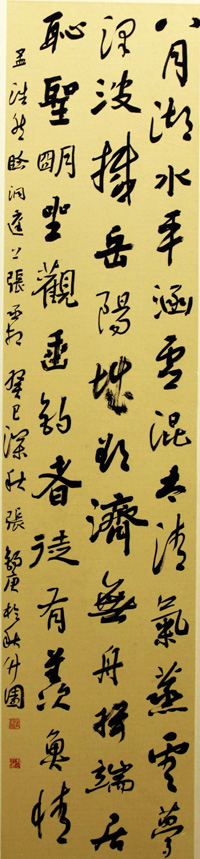 八月湖水平涵虛混太清氣蒸雲夢
澤波撼岳陽城欲濟無舟楫端居
恥聖明坐觀垂釣者徒有羨魚情
孟浩然臨洞庭上張丞相癸巳深秋張庚於園